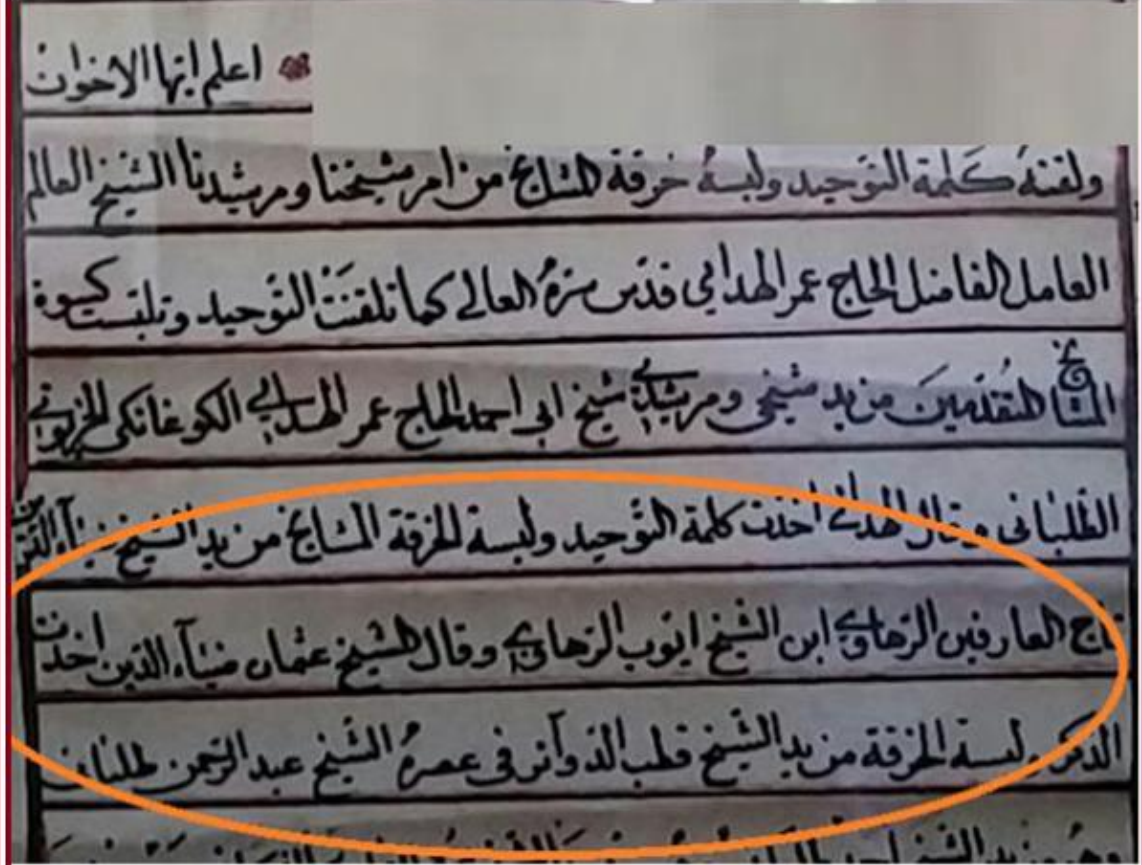 اعلم ايها الاخوان
ولقنة كلمة التوحيد ولبسة خرقة المشايخ من امر شيخنا ومرشدنا الشيخ العالم
العامل الفاضل الحاج عمر الهدايي قدس سره العالي كما تلقنت التوحيد وتلبست كسوة
المشايخ المتقدمين من يد شيخي ومرشدي شيخ ابي احمد الحاج عمر الهدايي الكوغانكي الخربوتي
الطلباني وقال اخذت كلمة التوحيد ولبسة الخرقة المشايخ من يد الشيخ ضياء الدين
تاج العارفين الرهاوي ابن الشيخ ايوب الرهاوي وقال الشيخ عثمان ضياء الدين اخذت
الذكر ولبسة الخرقة من يد الشيخ قطب الدوآئر في عصره الشيخ عبد الرحمن طلباني